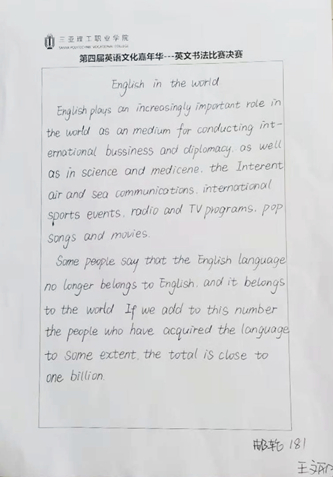 三亚理工职业学院
第四届英语文化嘉年华---英文书法比赛决赛
English in the world
English plays an increasingly important role in
the world as an medium for conducting int-
ernational bussiness and diplomacy, as well
as in science and medicene, the Interent
air and sea communications, international
sports events, radio and TV programs, pop
songs and movies.
Some people say that the English language
no longer belongs to English, and it belongs
to the world If we add to this number
the people who have acquired the language
to some extent, the total is close to
one billion.
181